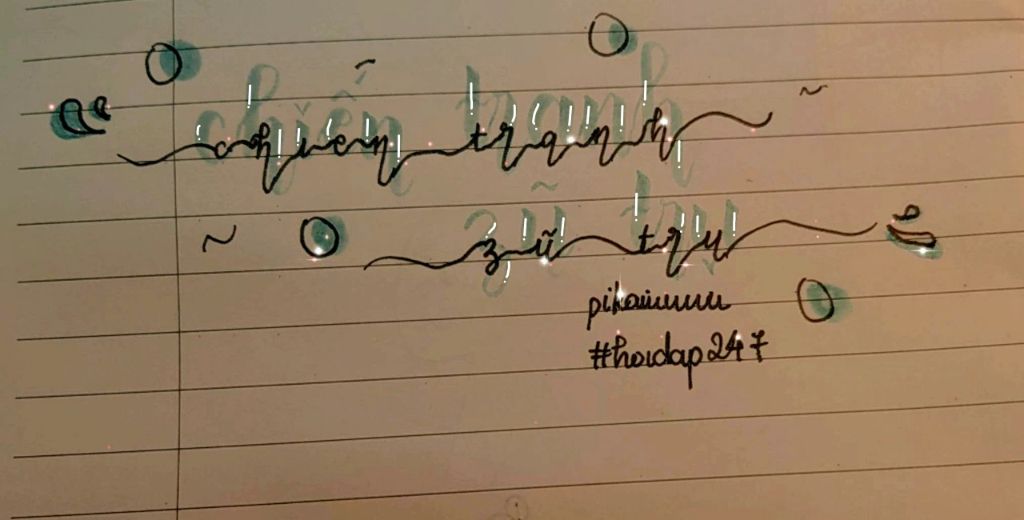 chiến tranh
zũ trụ
pikaiuuuu
#hoidap247